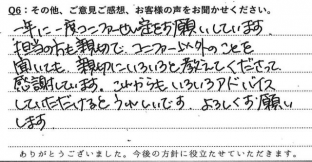 Q6：その他、ご意見ご感想、お客様の声をお聞かせください。
一年に一度コニファーせん定をお願いしています。
担当の方も親切で、コニファー以外のことを
聞いても、親切にいろいろと教えてくださって
感謝しています。これからもいろいろアドバイス
していただけるとうれしいです。よろしくお願い
します。
ありがとうございました。今後の方針に役立たせていただきます。